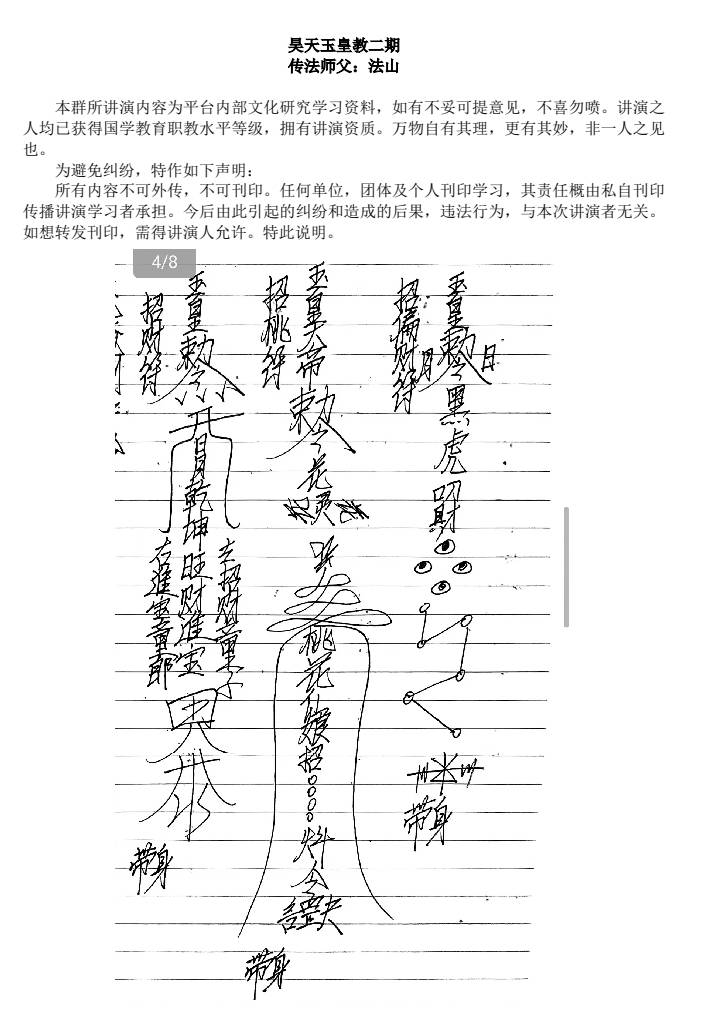 昊天玉皇教二期
传法师父：法山
本群所讲演内容为平台内部文化研究学习资料，如有不妥可提意见，不喜勿喷。讲演之
人均已获得国学教育职教水平等级，拥有讲演资质。万物自有其理，更有其妙，非一人之见
也。
为避免纠纷，特作如下声明：
所有内容不可外传，不可刊印。任何单位，团体及个人刊印学习，其责任概由私自刊印
传播讲演学习者承担。今后由此引起的纠纷和造成的后果，违法行为，与本次讲演者无关。
如想转发刊印，需得讲演人允许。特此说明。
4/8
玉皇敕令黑虎
財
日
月
招偏财符
带身
玉皇大帝敕令花
桃花仙娘招
招桃符
带身
玉皇敕令
乾坤旺财進宝
左招财童子
右進宝童郎
招财符
带身